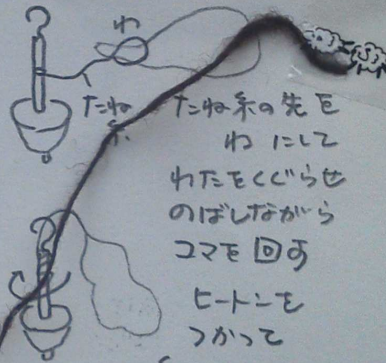 わ
たね
糸
たね糸の先を
わにして
わたをくぐらせ
のばしながら
コマを回す
ヒートンを
つかって